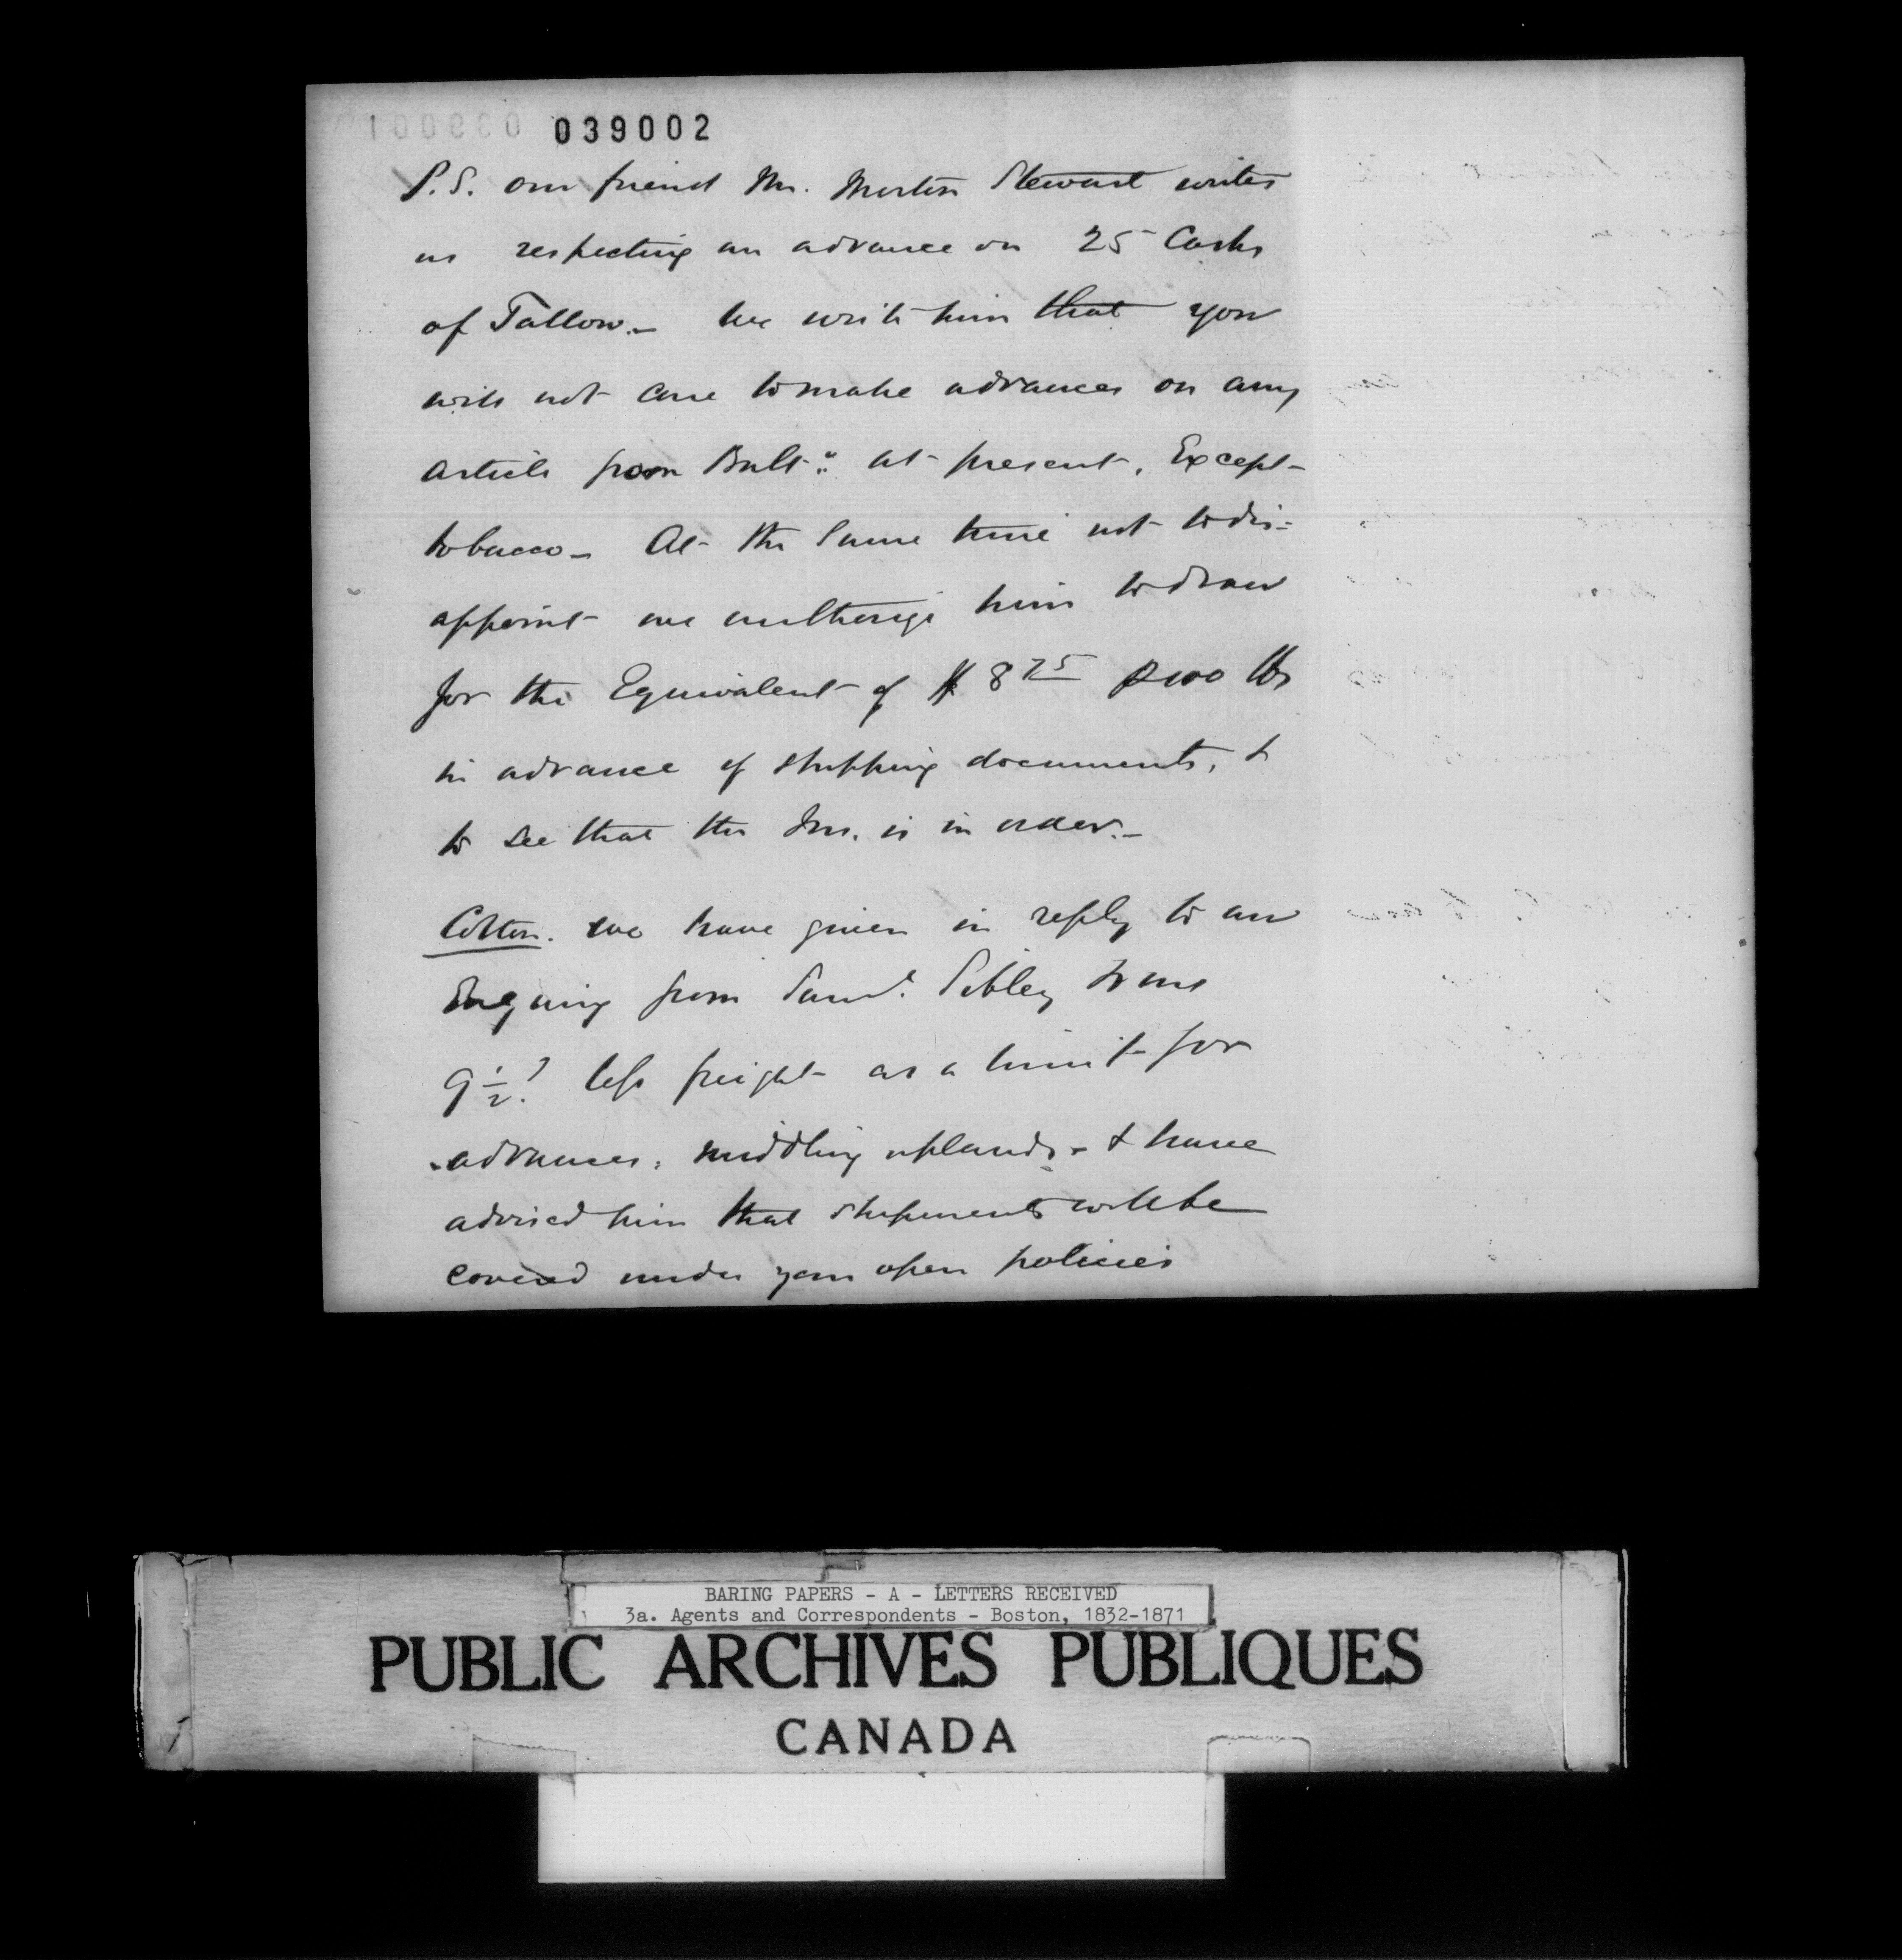 039002
P.S. our friend Mr. Morton Stewart writes
us respecting an advance on 25 Casks
of Tallow._ We write him that you
will not care to make advances on any
article from Balt.o at present, Except
tobacco_ At the same time not to dis-
appoint we authorize him to draw
for the Equivalent of $ 8 75 ₱ 100 lbs
in advance of shipping documents, &
to see that the Ins. is in order._
Cotton. we have given in reply to an
Enquiry from Saml. Sibley
9 1/2d less freight as a limit for
advances, middling uplands - & have
advised him that shipments will be
covered under your open policies
BARING PAPERS - A - LETTERS RECEIVED
3a. Agents and Correspondents - Boston, 1832-1871
PUBLIC ARCHIVES PUBLIQUES
CANADA